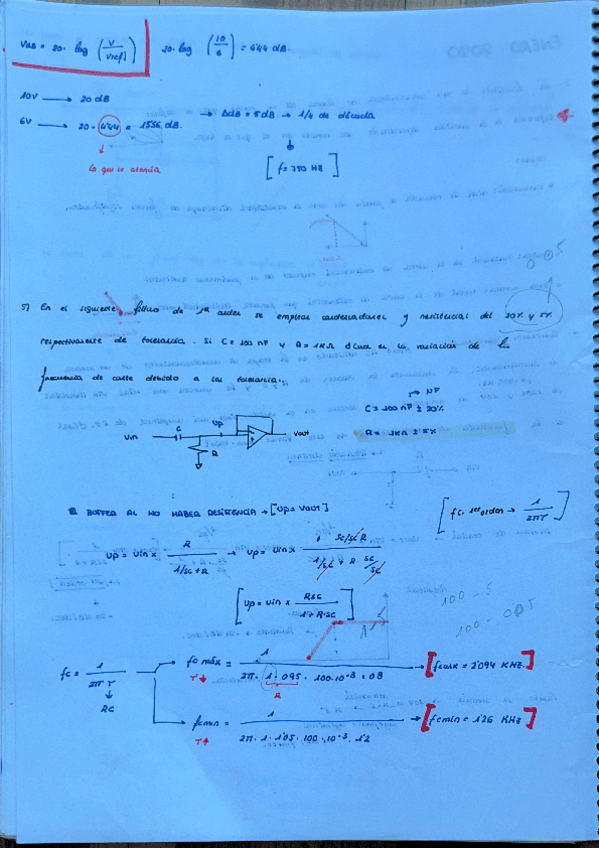 VdB = 20· log (V/Vref) 20· log (10/6) = 4'44 dB.
10V → 20 dB
6V → 20 - 4'44 = 15'56 dB. → ΔdB = 5dB → 1/4 de década
Lo que se atenúa
[f = 750 Hz]
5) En el siguiente filtro de 1er orden se emplean condensadores y resistencias del 20% y 5%
respectivamente de tolerancia. Si C = 100 nF y R = 1KΩ ¿Cuál es la variación de la
frecuencia de corte debido a las tolerancia.
→ NF
C = 100 nF ± 20%
R = 1KΩ ± 5%
Vin C Up Vout
R
BUFFER AL NO HABER RESISTENCIA → [Up = Vout]
[fc 1er orden → 1/2πτ]
Up = Uin x R / 1/sc + R → Up = Uin x sc/sc R / 1/sc + R · sc/sc
[Up = Uin x Rsc / 1 + R·sc]
100 - 5
fc = 1 / 2πτ
RC
fc máx = 1 / 2π · 1 · 0'95 · 100·10⁻³ · 0'8 → [fcmáx = 2'094 KHz]
τ↓ R
fcmin = 1 / 2π · 1 · 1'05 · 100 · 10⁻³ · 1'2 → [fcmin = 1'26 KHz]
τ↑